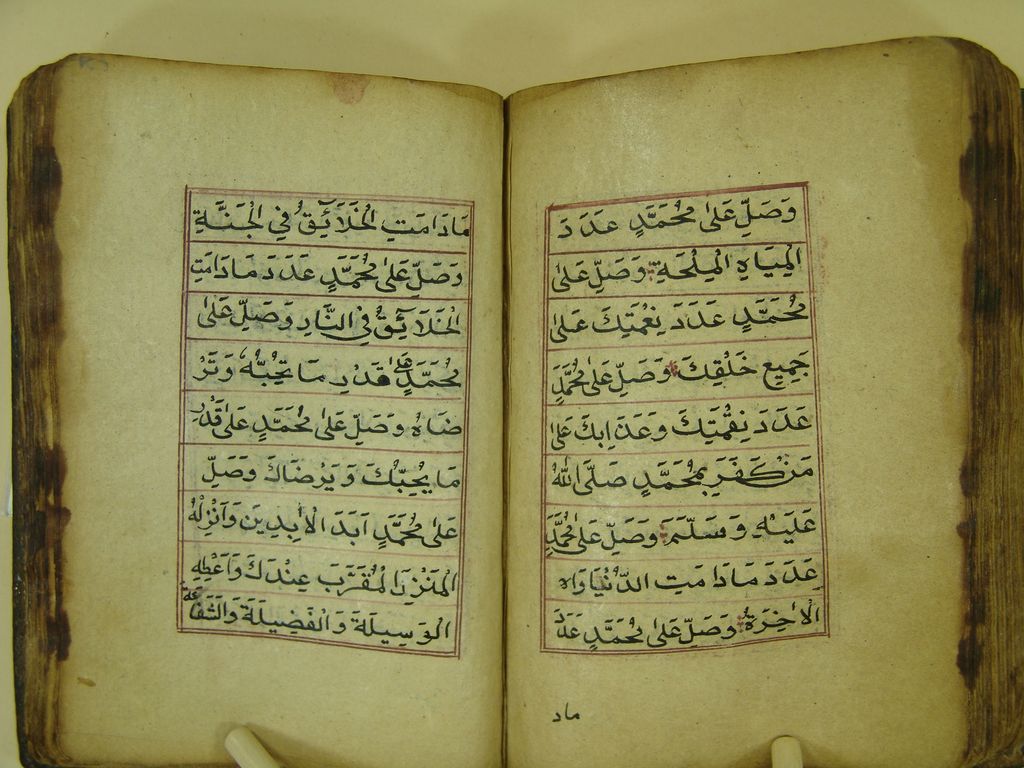 وَصَلِّ عَلٰى مُحَمَّدٍ عَدَدَ
الْمِيَاهِ الْمِلْحَةِ وَصَلِّ عَلٰى
مُحَمَّدٍ عَدَدَ نِعْمَتِكَ عَلٰى
جَمِيعِ خَلْقِكَ وَصَلِّ عَلٰى مُحَمَّدٍ
عَدَدَ نِقْمَتِكَ وَعَذَابِكَ عَلٰى
مَنْ كَفَرَ بِمُحَمَّدٍ صَلَّى اللّٰهُ
عَلَيْهِ وَسَلَّمَ وَصَلِّ عَلٰى مُحَمَّدٍ
عَدَدَ مَادَامَتِ الدُّنْيَا وَاه
الْاٰخِرَةُ وَصَلِّ عَلٰى مُحَمَّدٍ عَدَدَ
ماد
مَادَامَتِ الْخَلَآئِقُ فِي الْجَنَّةِ
وَصَلِّ عَلٰى مُحَمَّدٍ عَدَدَ مَادَامَتِ
الْخَلَآئِقُ فِي النَّارِ وَصَلِّ عَلٰى
مُحَمَّدٍ عَلٰى قَدْرِ مَا تُحِبُّهُ وَتَرْ
ضَاهُ وَصَلِّ عَلٰى مُحَمَّدٍ عَلٰى قَدْرِ
مَا يُحِبُّكَ وَيَرْضَاكَ وَصَلِّ
عَلٰى مُحَمَّدٍ اَبَدَ الْاٰبِدِينَ وَاَنْزِلْهُ
الْمَنْزِلَ الْمُقَرَّبَ عِنْدَكَ وَاَعْطِهِ
الْوَسِيلَةَ وَالْفَضِيلَةَ وَالشَّفَاعَةَ